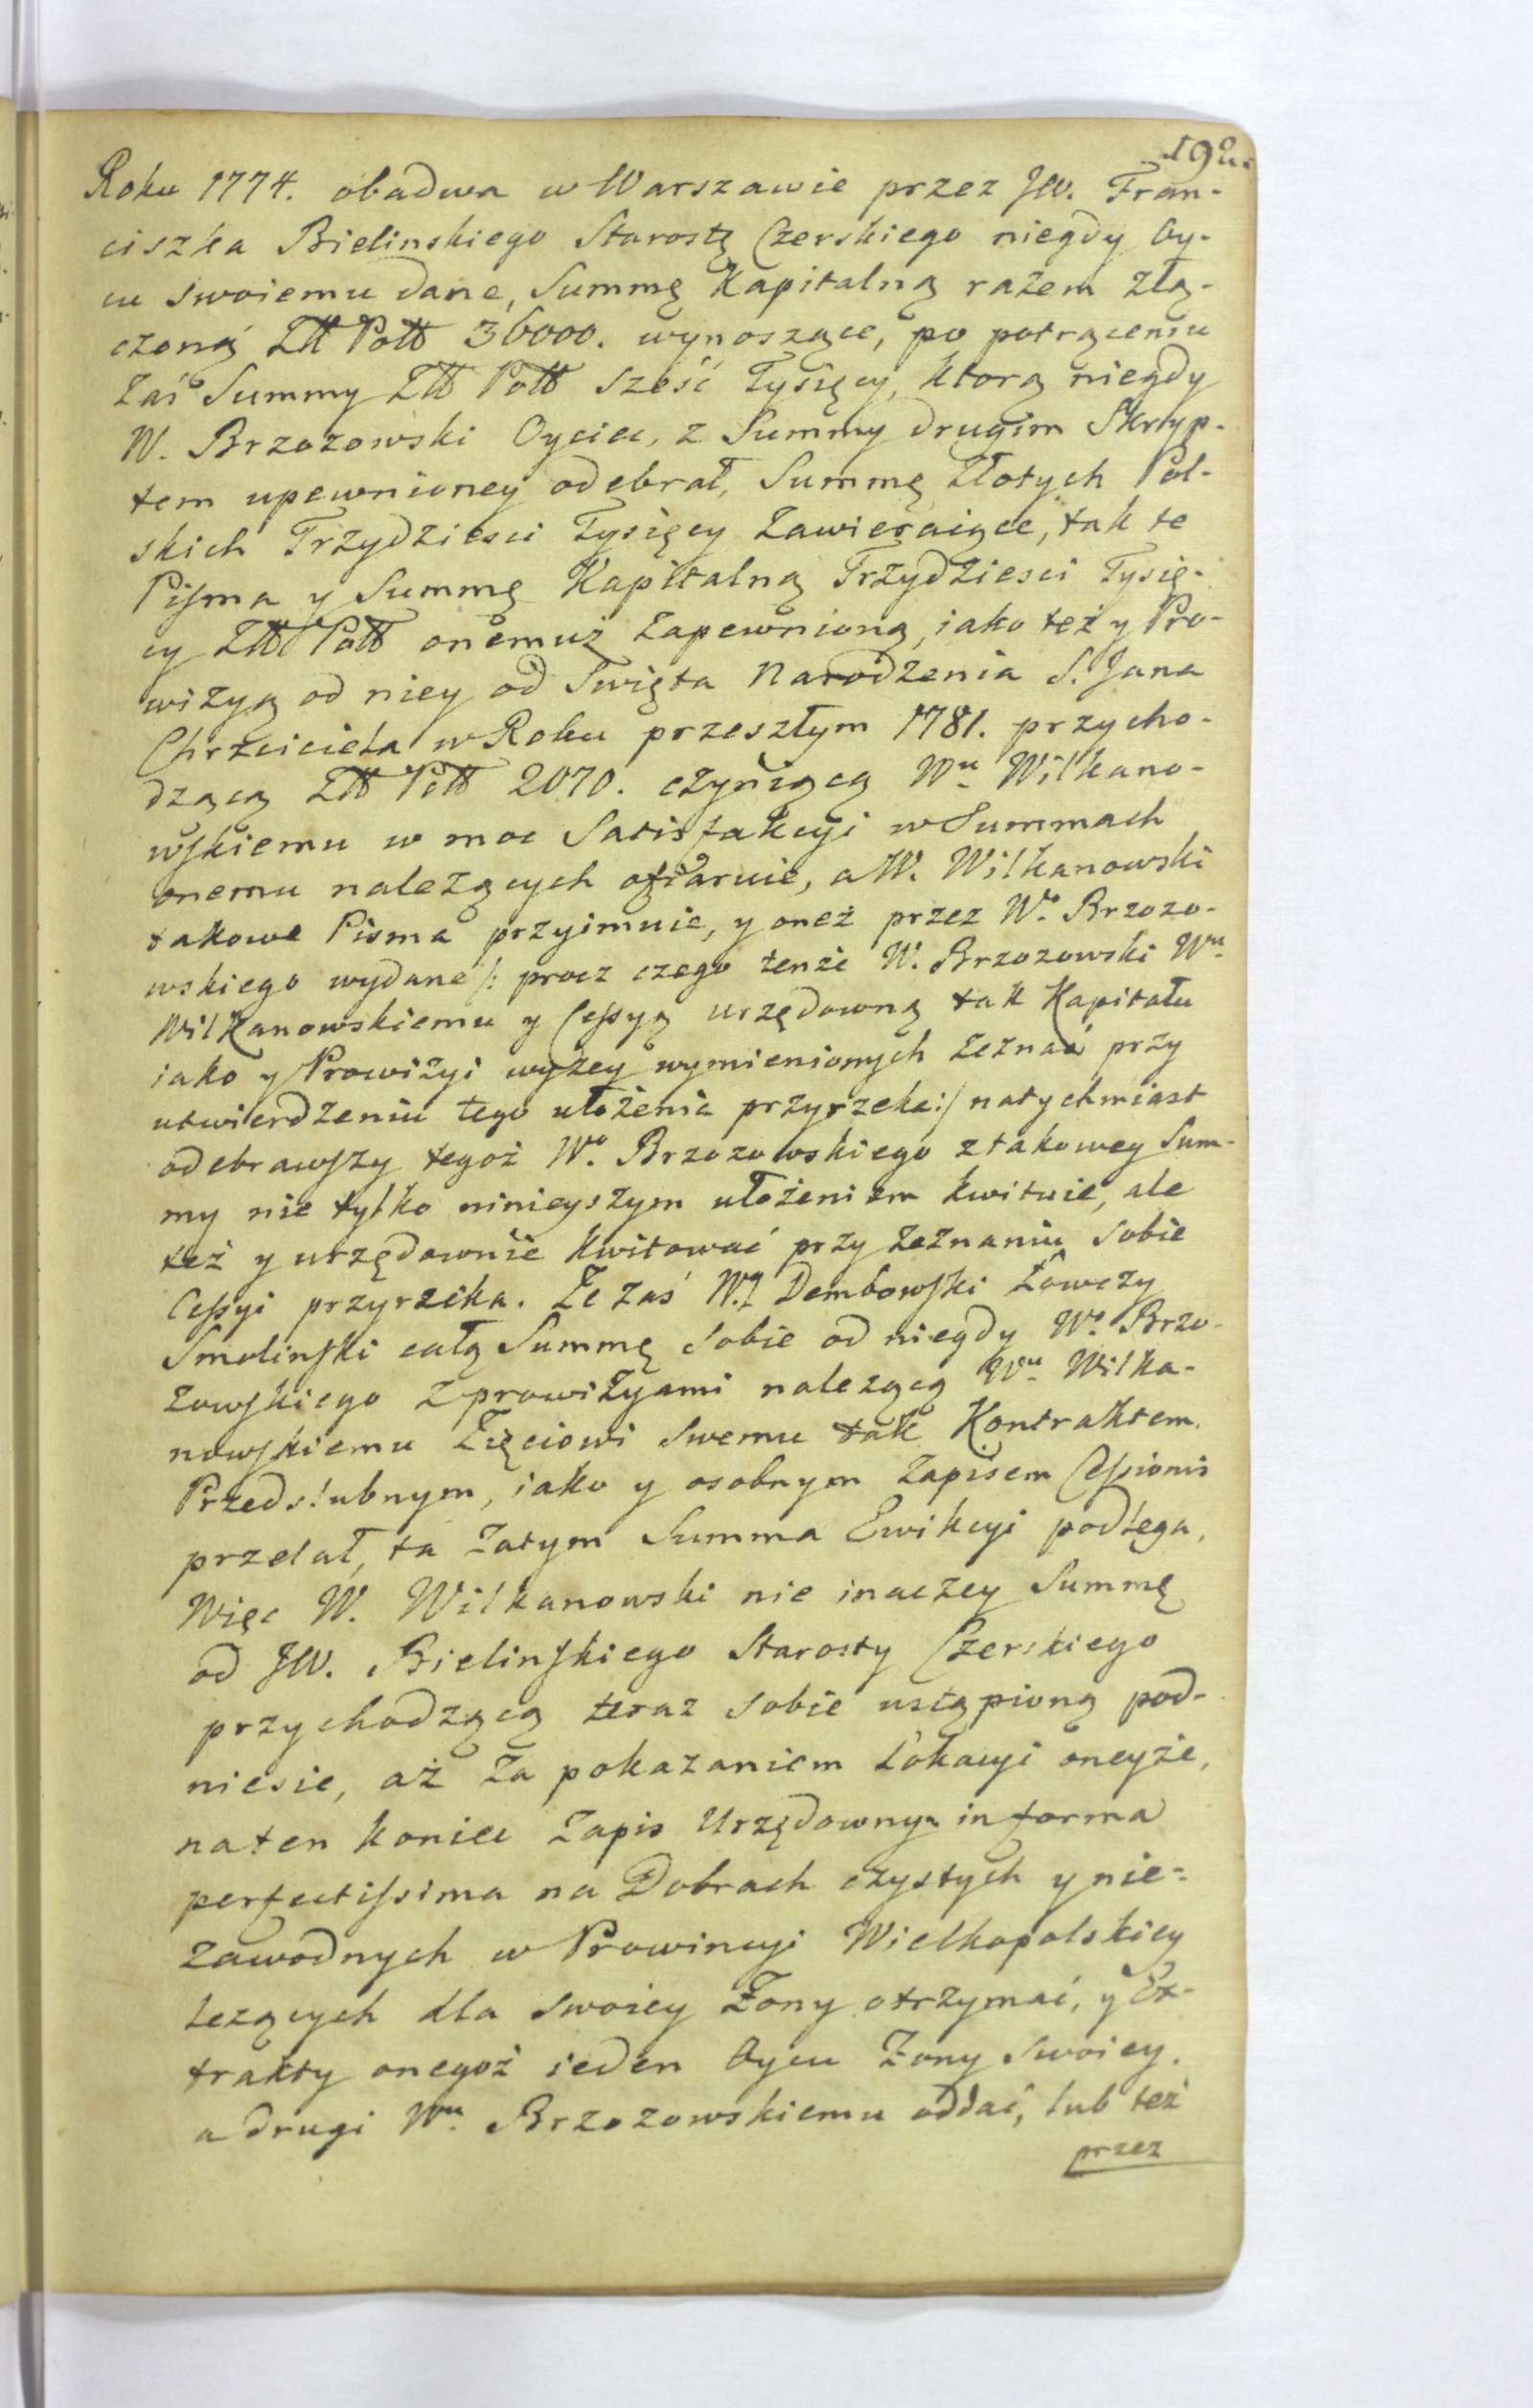 192.
Roku 1774. obadwa w Warszawie przez JW. Fran-
ciszka Bielinskiego Starostę Czerskiego niegdy Oy-
cu swoiemu dane, Summę Kapitalną razem złą-
czoną Złł Poll 36000. wynoszące, po potrąceniu
Zaś Summy Złł Poll sześć Tysięcy, ktorą niegdy
W. Brzozowski Oyciec, z Summy drugim Skryp-
tem upewnioney odebrał, Summę Złotych Pol-
skich Trzydziesci Tysięcy Zawieraiące, tak te
Pisma y Summę Kapitalną Trzydziesci Tysię-
cy Złł Poll onemuż Zapewnioną, iako też y Pro-
wizyą od niey od Swięta Narodzenia S. Jana
Chrzciciela w Roku przeszłym 1781. przycho-
dzącą Złł Poll 2070. czyniącą Wu. Wilkano-
wskiemu w moc Satisfakcyi w Summach
onemu należących ofiaruie, a W. Wilkanowski
takowe Pisma przyimuie, y oneż przez Wo. Brzozo-
wskiego wydane /: procz czego tenże W. Brzozowski Wu.
Wilkanowskiemu y Cessyą urzędowną tak Kapitału
iako y Prowizyi wyżey wymienionych zeznać przy
utwierdzeniu tego ułożenia przyrzeka :/ natychmiast
odebrawszy tegoż Wo. Brzozowskiego z takowey Sum-
my nie tylko ninieyszym ułożeniem kwituie, ale
też y urzędownie kwitować przy zeznaniu sobie
Cessyi przyrzeka. Że zaś W. Dembowski Łowczy
Smolinski całą Summę sobie od niegdy Wo. Brzo-
zowskiego z prowizyami należącą Wu. Wilka-
nowskiemu Zięciowi swemu tak Kontraktem
Przedslubnym, iako y osobnym Zapisem Cessionis
przelał, ta Zatym Summa Ewikcyi podlega,
Więc W. Wilkanowski nie inaczey Summę
od JW. Bielinskiego Starosty Czerskiego
przychodzącą teraz sobie ustąpioną pod-
niesie, aż za pokazaniem Lokacyi oneyże,
na ten koniec Zapis Urzędowny in forma
perfectissima na Dobrach czystych y nie-
zawodnych w Prowincyi Wielkopolskiey
leżących dla swoiey Żony otrzymać, y Ex-
trakty onegoż ieden Oycu Żony swoiey,
a drugi Wu. Brzozowskiemu oddać, lub też
przez